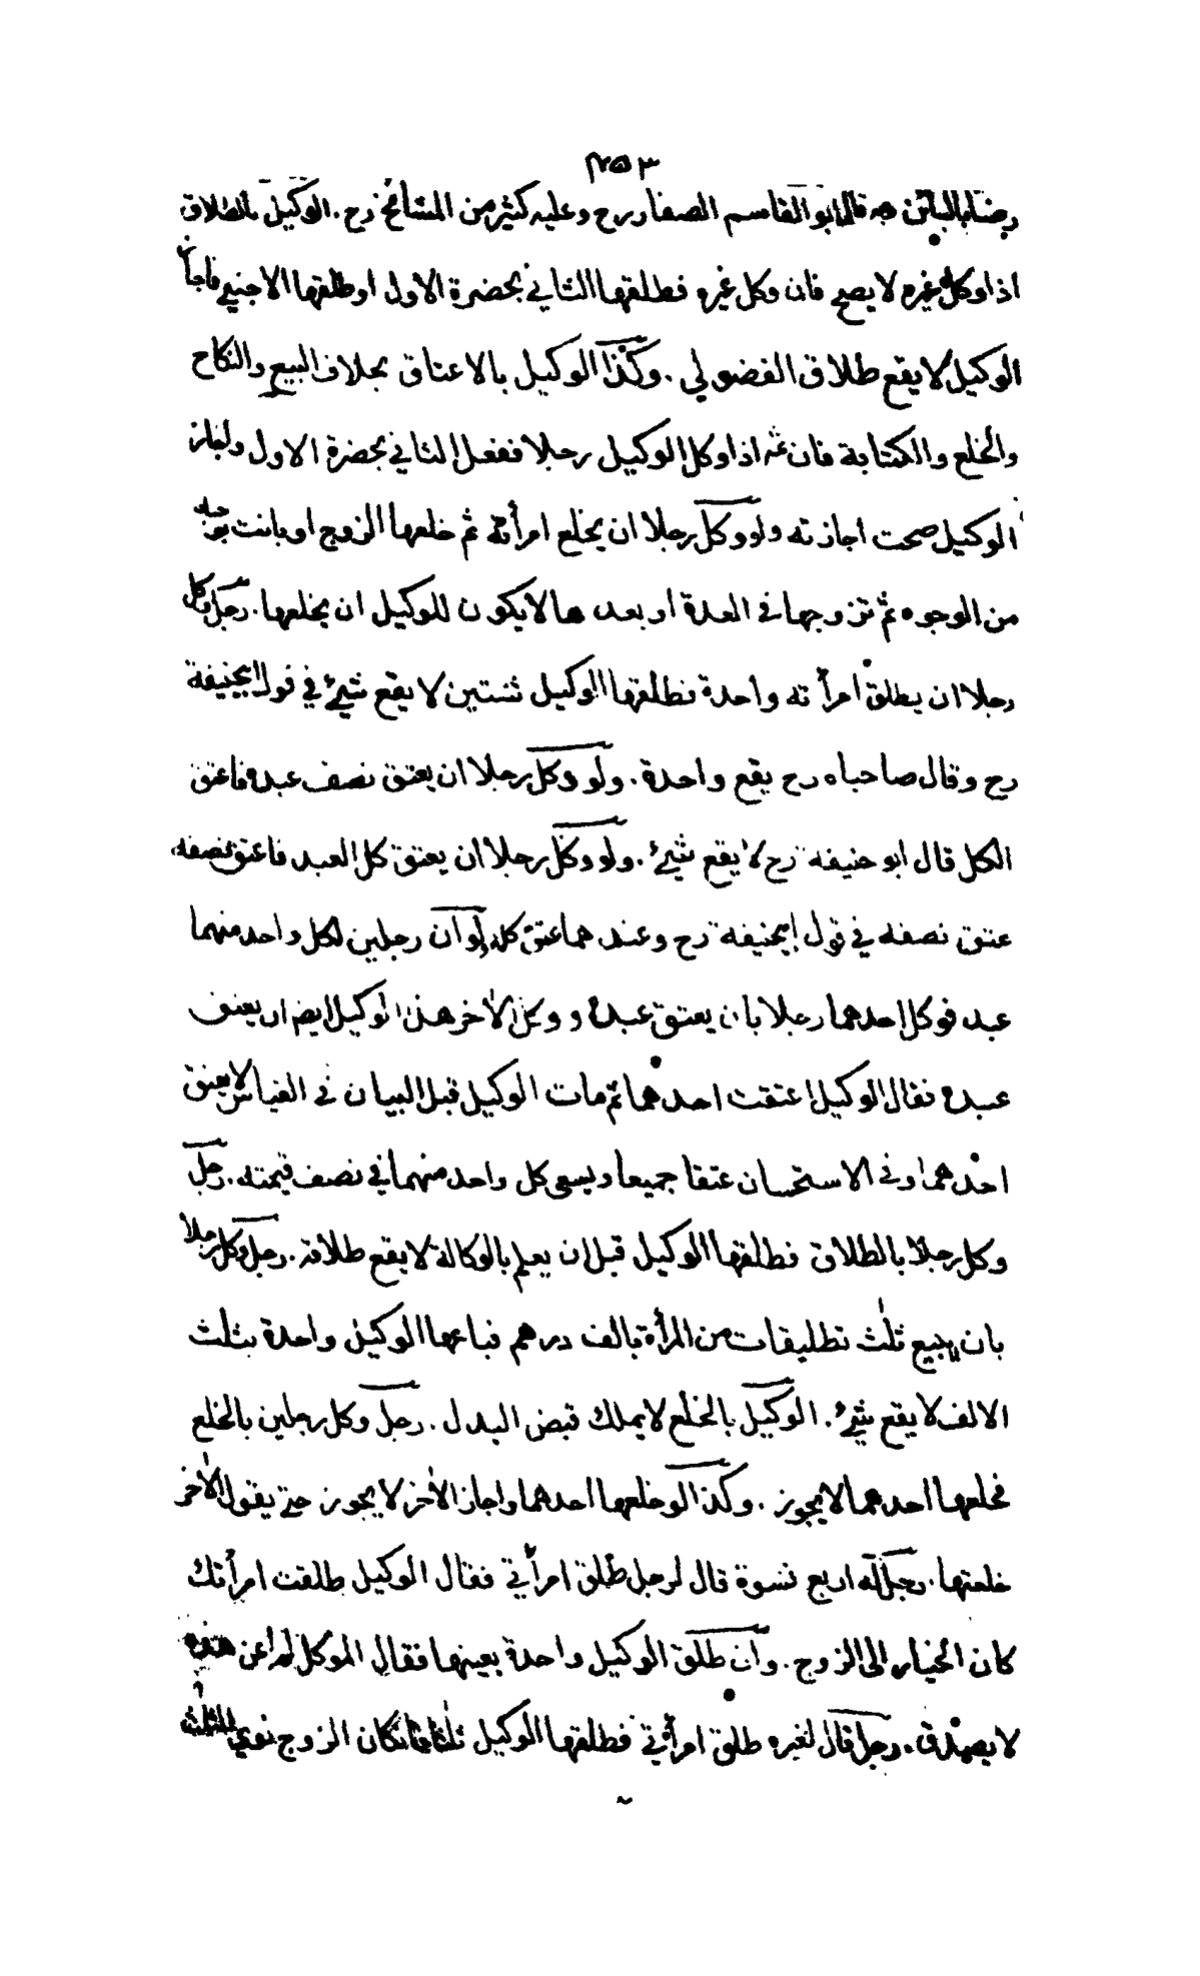 ٢٥٣
رضا بالبائن وبه قال ابو القاسم الصفار رح وعليه كثير من المشائخ رح. الوكيل بالطلاق
اذا وكل غيره لا يصح فان وكل غيره فطلقها الثاني بحضرة الاول او طلقها الاجنبي فاجاز
الوكيل لا يقع طلاق الفضولي. وكذا الوكيل بالاعتاق بخلاف البيع والنكاح
والخلع والكتابة فان ثمه اذا وكل الوكيل رجلا ففعل الثاني بحضرة الاول واجاز
الوكيل صحت اجازته ولو وكل رجلا ان يخلع امرأته ثم خلعها الزوج او بانت بوجه
من الوجوه ثم تزوجها في العدة او بعدها لا يكون للوكيل ان يخلعها. رجل وكل
رجلا ان يطلق امرأته واحدة فطلقها الوكيل ثنتين لا يقع شيئ في قول ابيحنيفة
رح وقال صاحباه رح يقع واحدة. ولو وكل رجلا ان يعتق نصف عبده فاعتق
الكل قال ابو حنيفه رح لا يقع شيئ. ولو وكل رجلا ان يعتق كل العبد فاعتق نصفه
عتق نصفه في قول ابيحنيفه رح وعندهما عتق كله ولو ان رجلين لكل واحد منهما
عبد فوكل احدهما رجلا بان يعتق عبده ووكل الاخر هذا الوكيل ايضا ان يعتق
عبده فقال الوكيل اعتقت احدهما ثم مات الوكيل قبل البيان في القياس لا يعتق
احدهما وفي الاستحسان عتقا جميعا ويسعى كل واحد منهما في نصف قيمته. رجل
وكل رجلا بالطلاق فطلقها الوكيل قبل ان يعلم بالوكالة لا يقع طلاقه. رجل وكل رجلا
بان يبيع ثلث تطليقات من المرأة بالف درهم فباعها الوكيل واحدة بثلث
الالف لا يقع شيئ. الوكيل بالخلع لا يملك قبض البدل. رجل وكل رجلين بالخلع
فخلعها احدهما لا يجوز. وكذا لو خلعها احدهما واجاز الاخر لا يجوز حتى يقول الاخر
خلعتها. رجل له اربع نسوة قال لرجل طلق امرأتي فقال الوكيل طلقت امرأتك
كان الخيار الى الزوج. وان طلق الوكيل واحدة بعينها فقال الموكل لم اعن هذه
لا يصدق. رجل قال لغيره طلق امرأتي فطلقها الوكيل ثلثا فان كان الزوج نوى الثلث